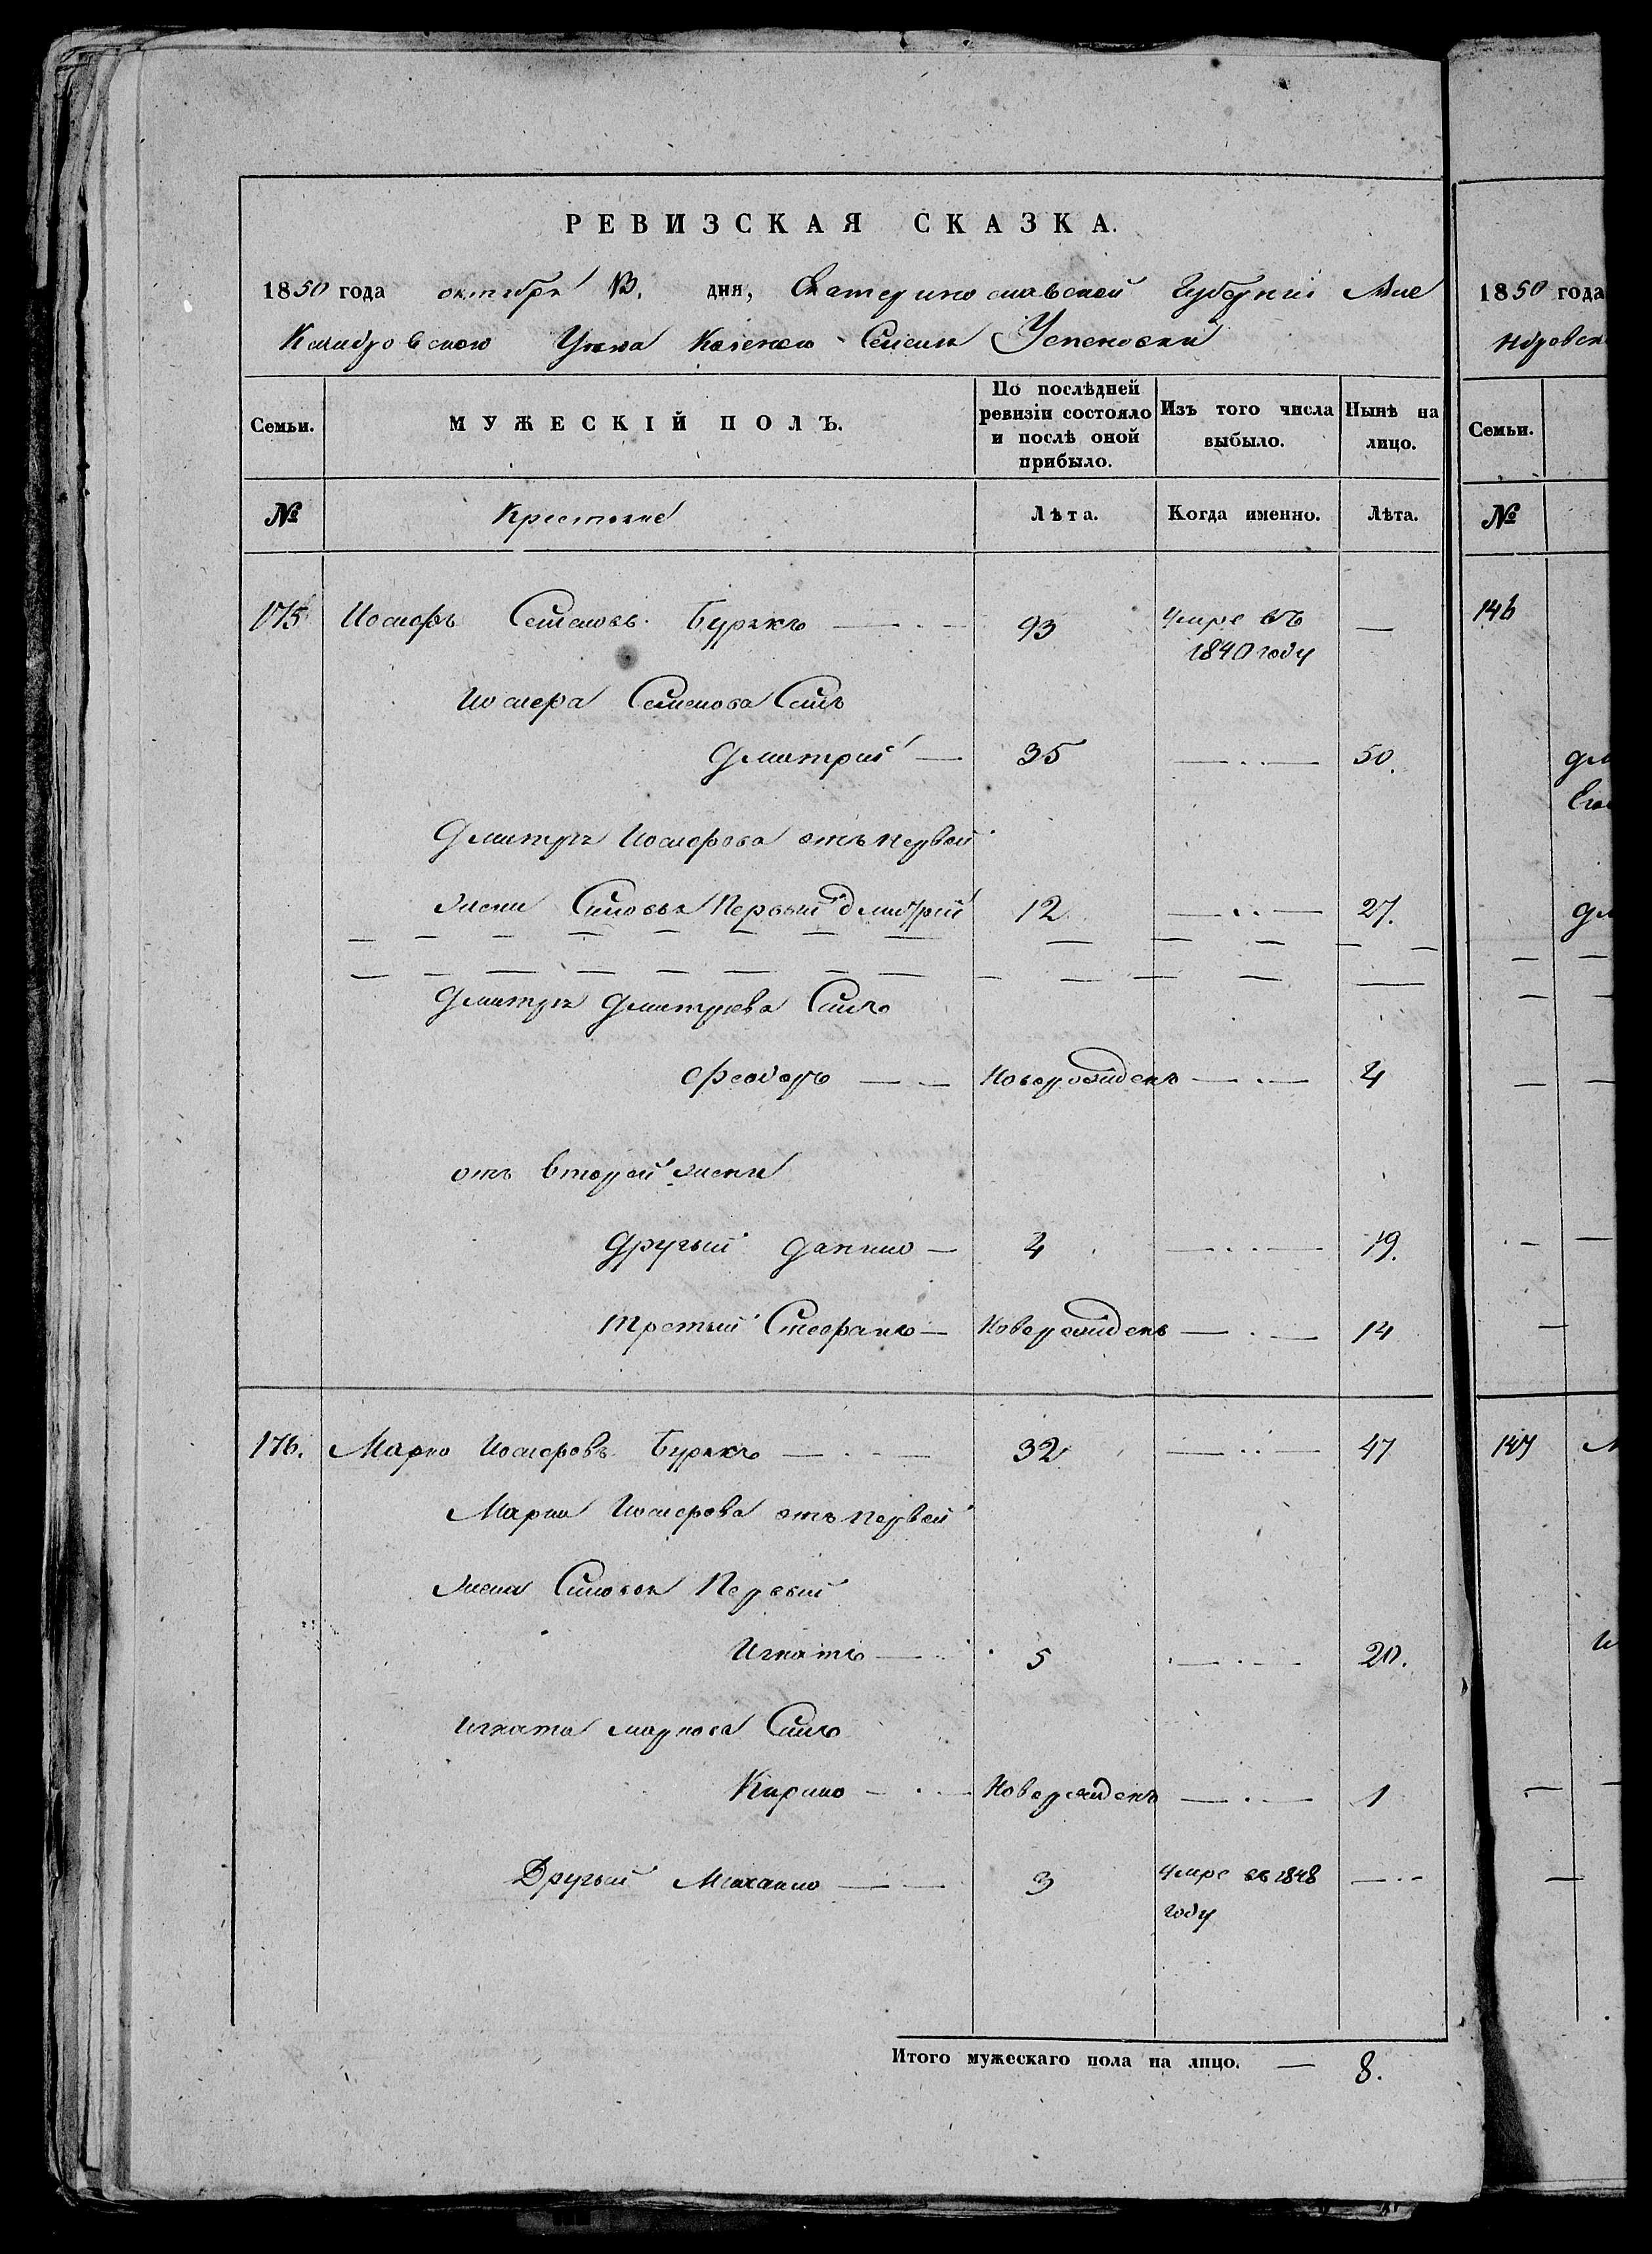 РЕВИЗСКАЯ СКАЗКА.
1850 года октября 13. дня, Екатеринославской Губернии Але
ксандровского Уезда Казенного Селения Успеновки
Семьи. МУЖЕСКІЙ ПОЛЪ. По послѣдней ревизіи состояло и послѣ оной прибыло. Изъ того числа выбыло. Нынѣ на лицо.
№ Крестьяне Лѣта. Когда именно. Лѣта.
175 Иосифъ Семеновъ Бурякъ 93 умре въ 1840 году —
Иосифа Семенова Сынъ
Дмитрий — 35 — 50.
Дмитрия Иосифова отъ первой
жены Сыновья Первый Дмитрий 12 — 27.
Дмитрия Дмитриева Сынъ
Феодоръ — Новорожденъ — 4
отъ второй жены
Другий Данило — 4 — 19.
Третий Стефанъ — Новорожденъ — 14
176. Марко Иосифовъ Бурякъ — 32 — 47
Марка Иосифова отъ первой
жены Сыновья Первый
Игнатъ — 5 — 20.
Игната Маркова Сынъ
Кирило — Новорожденъ — 1
Другий Михайло — 3 умре въ 1848 году —
Итого мужескаго пола на лицо. — 8.
1850 года
ндровск
Семьи.
№
146
147